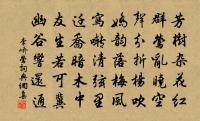 芳樹雜花紅
群鶯亂曉空
聲分折楊吹
嬌韻落梅風
寫囀清弦裏
遷喬暗木中
友生若可冀
幽谷響還通
李嶠鶯詞典網集